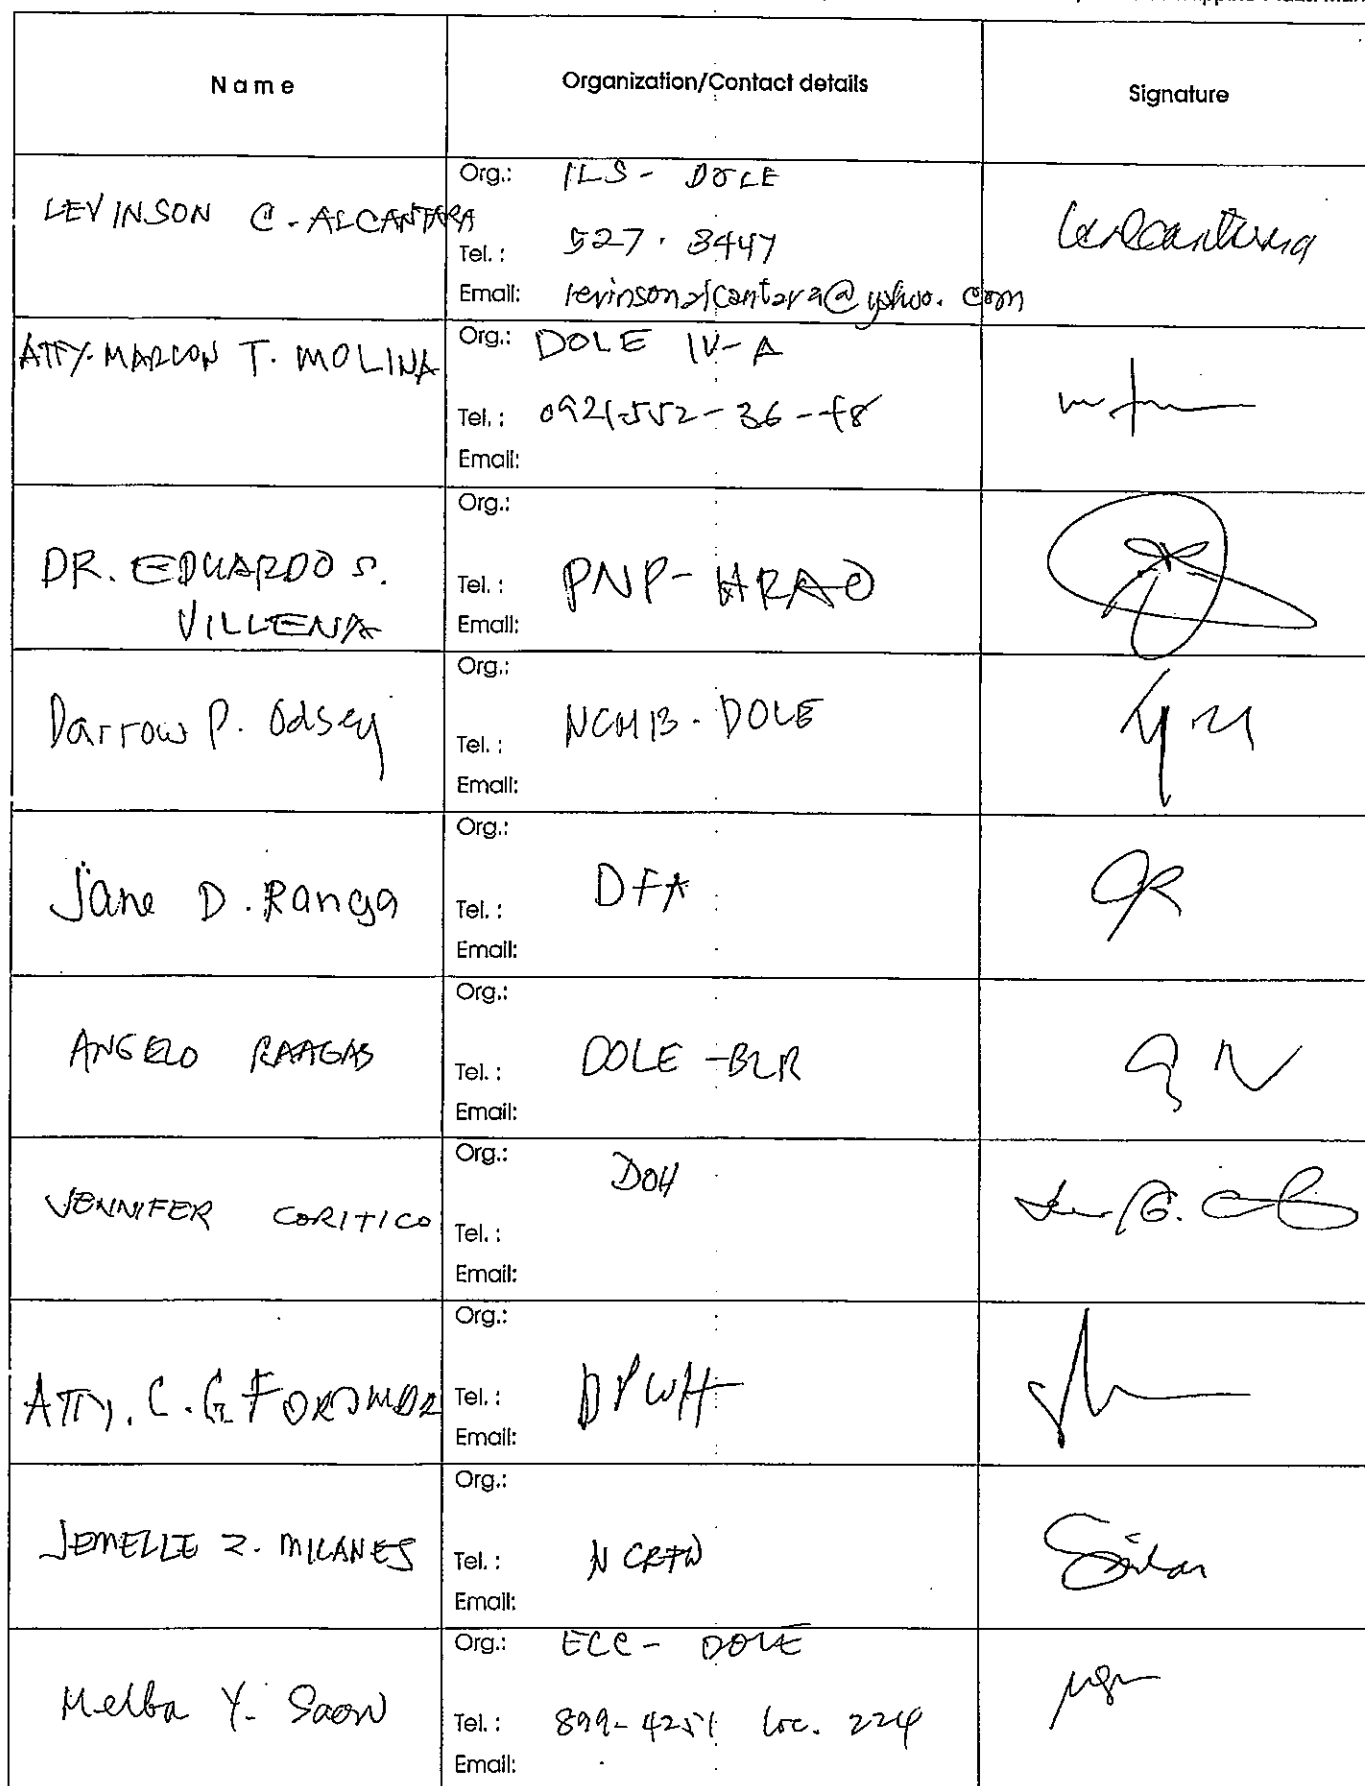 Name Organization/Contact details Signature
LEVINSON C. ALCANTARA
Org.: ILS - DOLE
Tel. : 527 . 8447
Email: levinsonalcantara@yahoo.com
ATTY. MARLON T. MOLINA
Org.: DOLE IV-A
Tel. : 0921-552-36-
Email:
DR. EDUARDO S.
VILLENA
Org.:
Tel. : PNP-HRAO
Email:
Darrow P. Odsey
Org.:
Tel. : NCMB - DOLE
Email:
Jane D. Ranga
Org.:
Tel. : DFA
Email:
ANGELO RAAGAS
Org.:
Tel. : DOLE -BLR
Email:
JENNIFER CORITICO
Org.: DOH
Tel. :
Email:
ATTY. C. G.
Org.:
Tel. : DPWH
Email:
JEMELLE Z. MILANES
Org.:
Tel. : NCRFW
Email:
Melba Y.
Org.: ECC - DOLE
Tel. : 899-4251 loc. 224
Email: